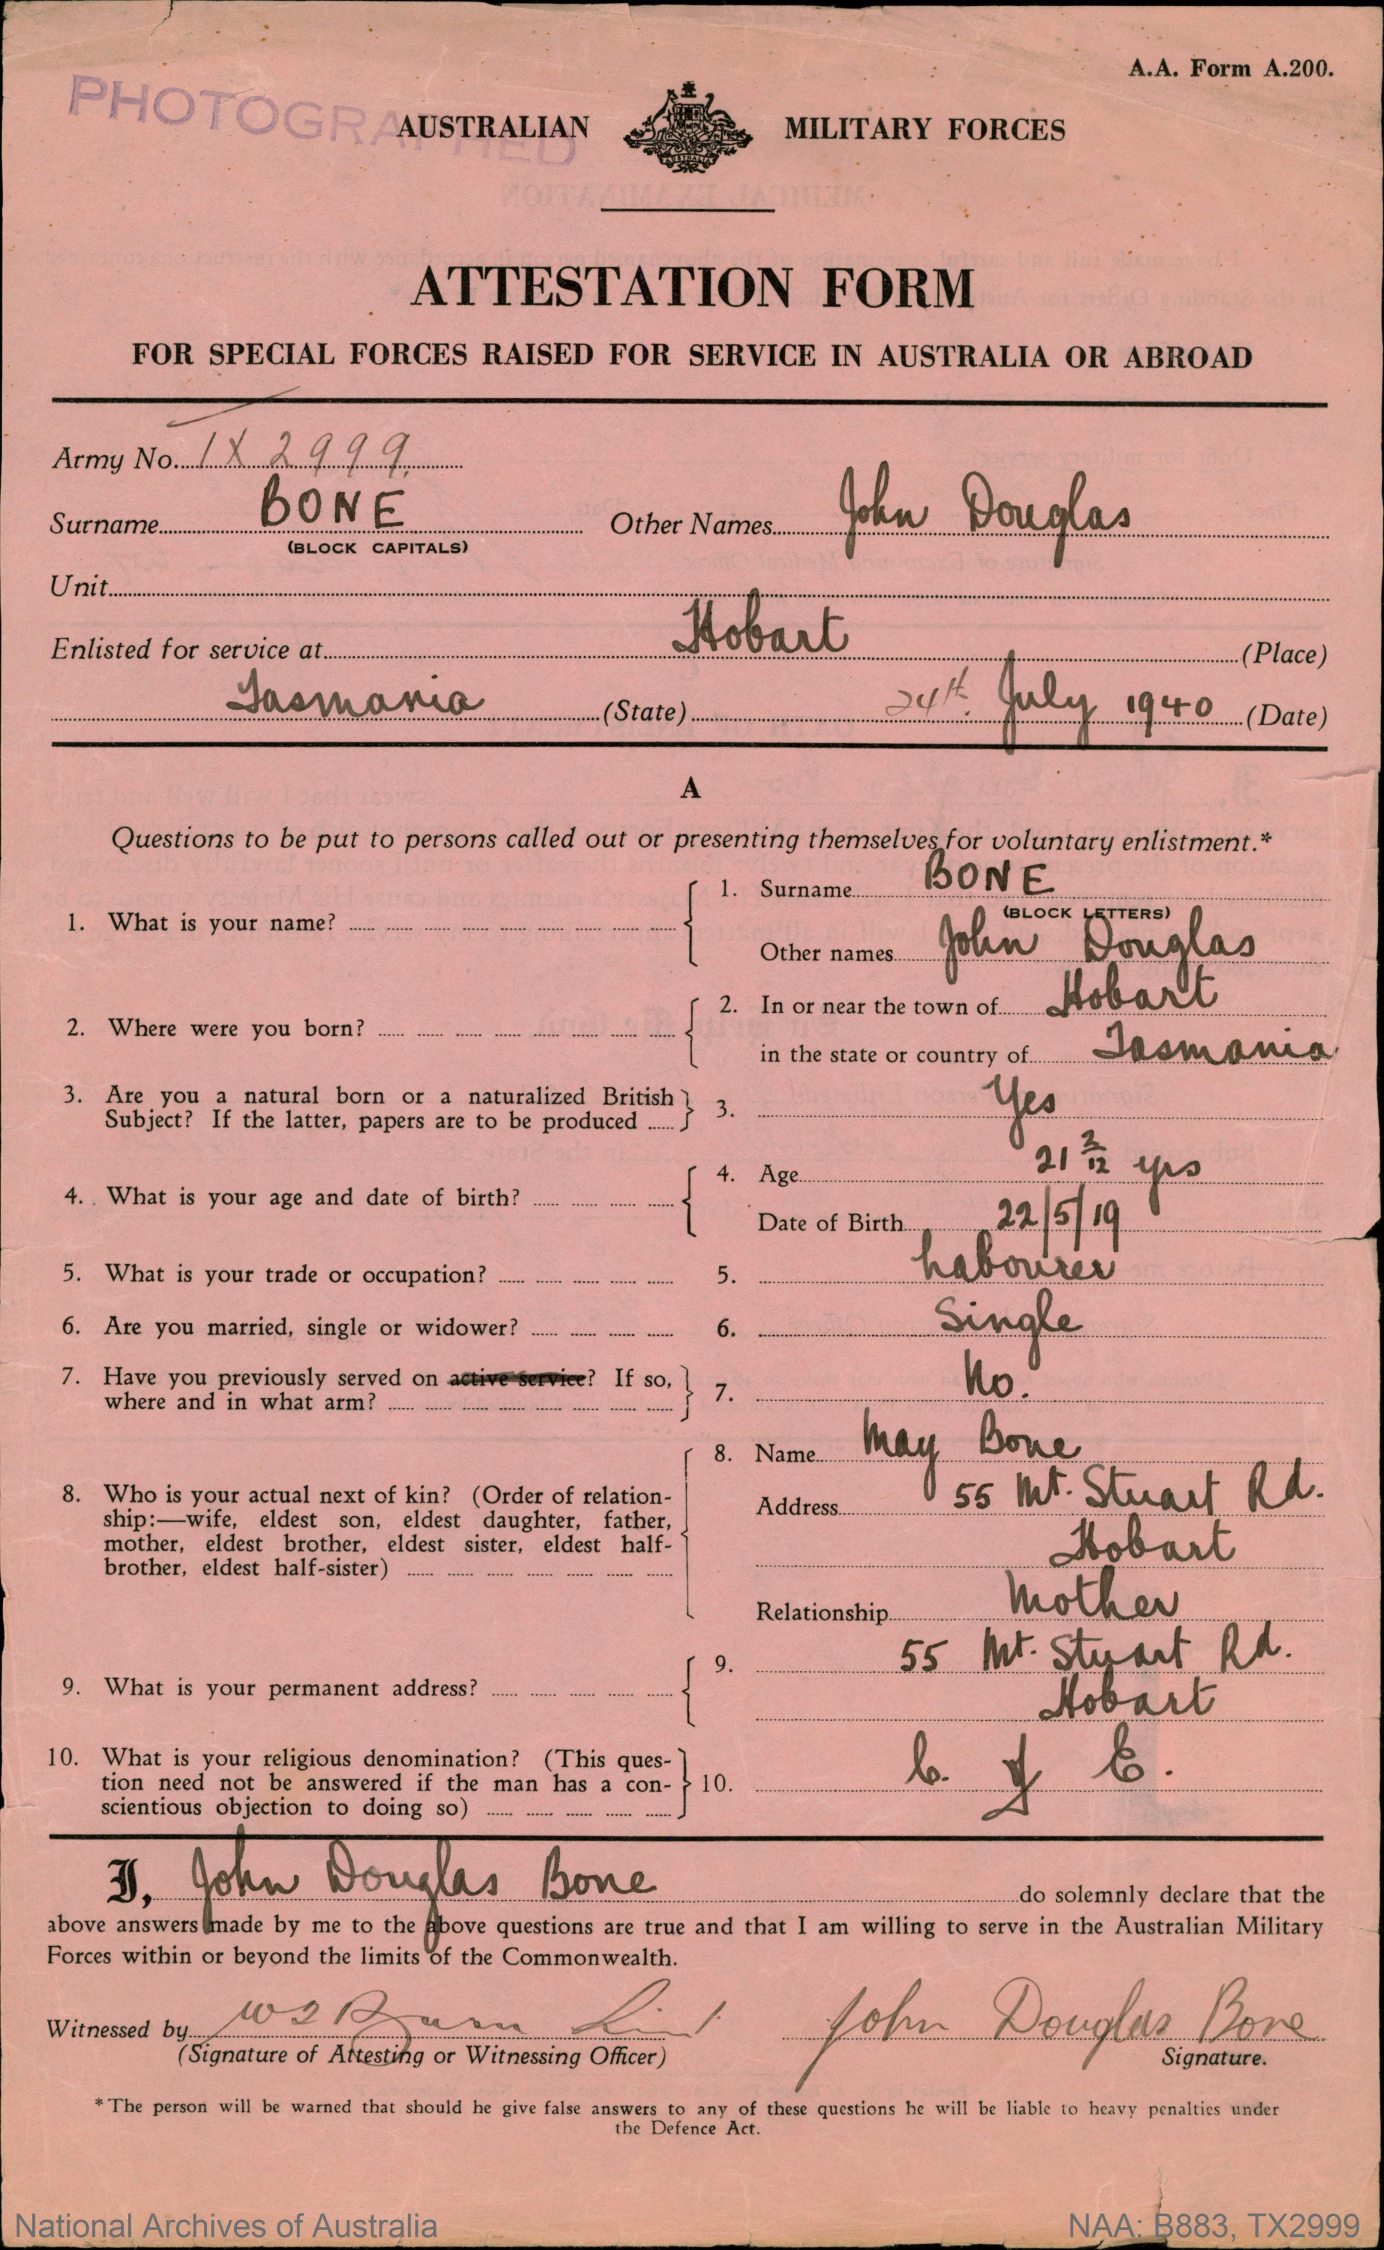 A.A. Form A.200.
PHOTOGRAPHED
AUSTRALIAN MILITARY FORCES
ATTESTATION FORM
FOR SPECIAL FORCES RAISED FOR SERVICE IN AUSTRALIA OR ABROAD
Army No. TX 2999.
Surname BONE Other Names John Douglas
(BLOCK CAPITALS)
Unit
Enlisted for service at Hobart (Place)
Tasmania (State) 24th. July 1940 (Date)
A
Questions to be put to persons called out or presenting themselves for voluntary enlistment.*
1. What is your name?
1. Surname BONE
(BLOCK LETTERS)
Other names John Douglas
2. Where were you born?
2. In or near the town of Hobart
in the state or country of Tasmania
3. Are you a natural born or a naturalized British
Subject? If the latter, papers are to be produced
3. Yes
4. What is your age and date of birth?
4. Age 21 2/12 yrs
Date of Birth 22/5/19
5. What is your trade or occupation? 5. Labourer
6. Are you married, single or widower? 6. Single
7. Have you previously served on active service? If so,
where and in what arm?
7. No.
8. Who is your actual next of kin? (Order of relation-
ship:—wife, eldest son, eldest daughter, father,
mother, eldest brother, eldest sister, eldest half-
brother, eldest half-sister)
8. Name May Bone
Address 55 Mt. Stuart Rd.
Hobart
Relationship Mother
9. What is your permanent address?
9. 55 Mt. Stuart Rd.
Hobart
10. What is your religious denomination? (This ques-
tion need not be answered if the man has a con-
scientious objection to doing so)
10. C. of E.
I, John Douglas Bone do solemnly declare that the
above answers made by me to the above questions are true and that I am willing to serve in the Australian Military
Forces within or beyond the limits of the Commonwealth.
Witnessed by John Douglas Bone
(Signature of Attesting or Witnessing Officer) Signature.
*The person will be warned that should he give false answers to any of these questions he will be liable to heavy penalties under
the Defence Act.
National Archives of Australia NAA: B883, TX2999